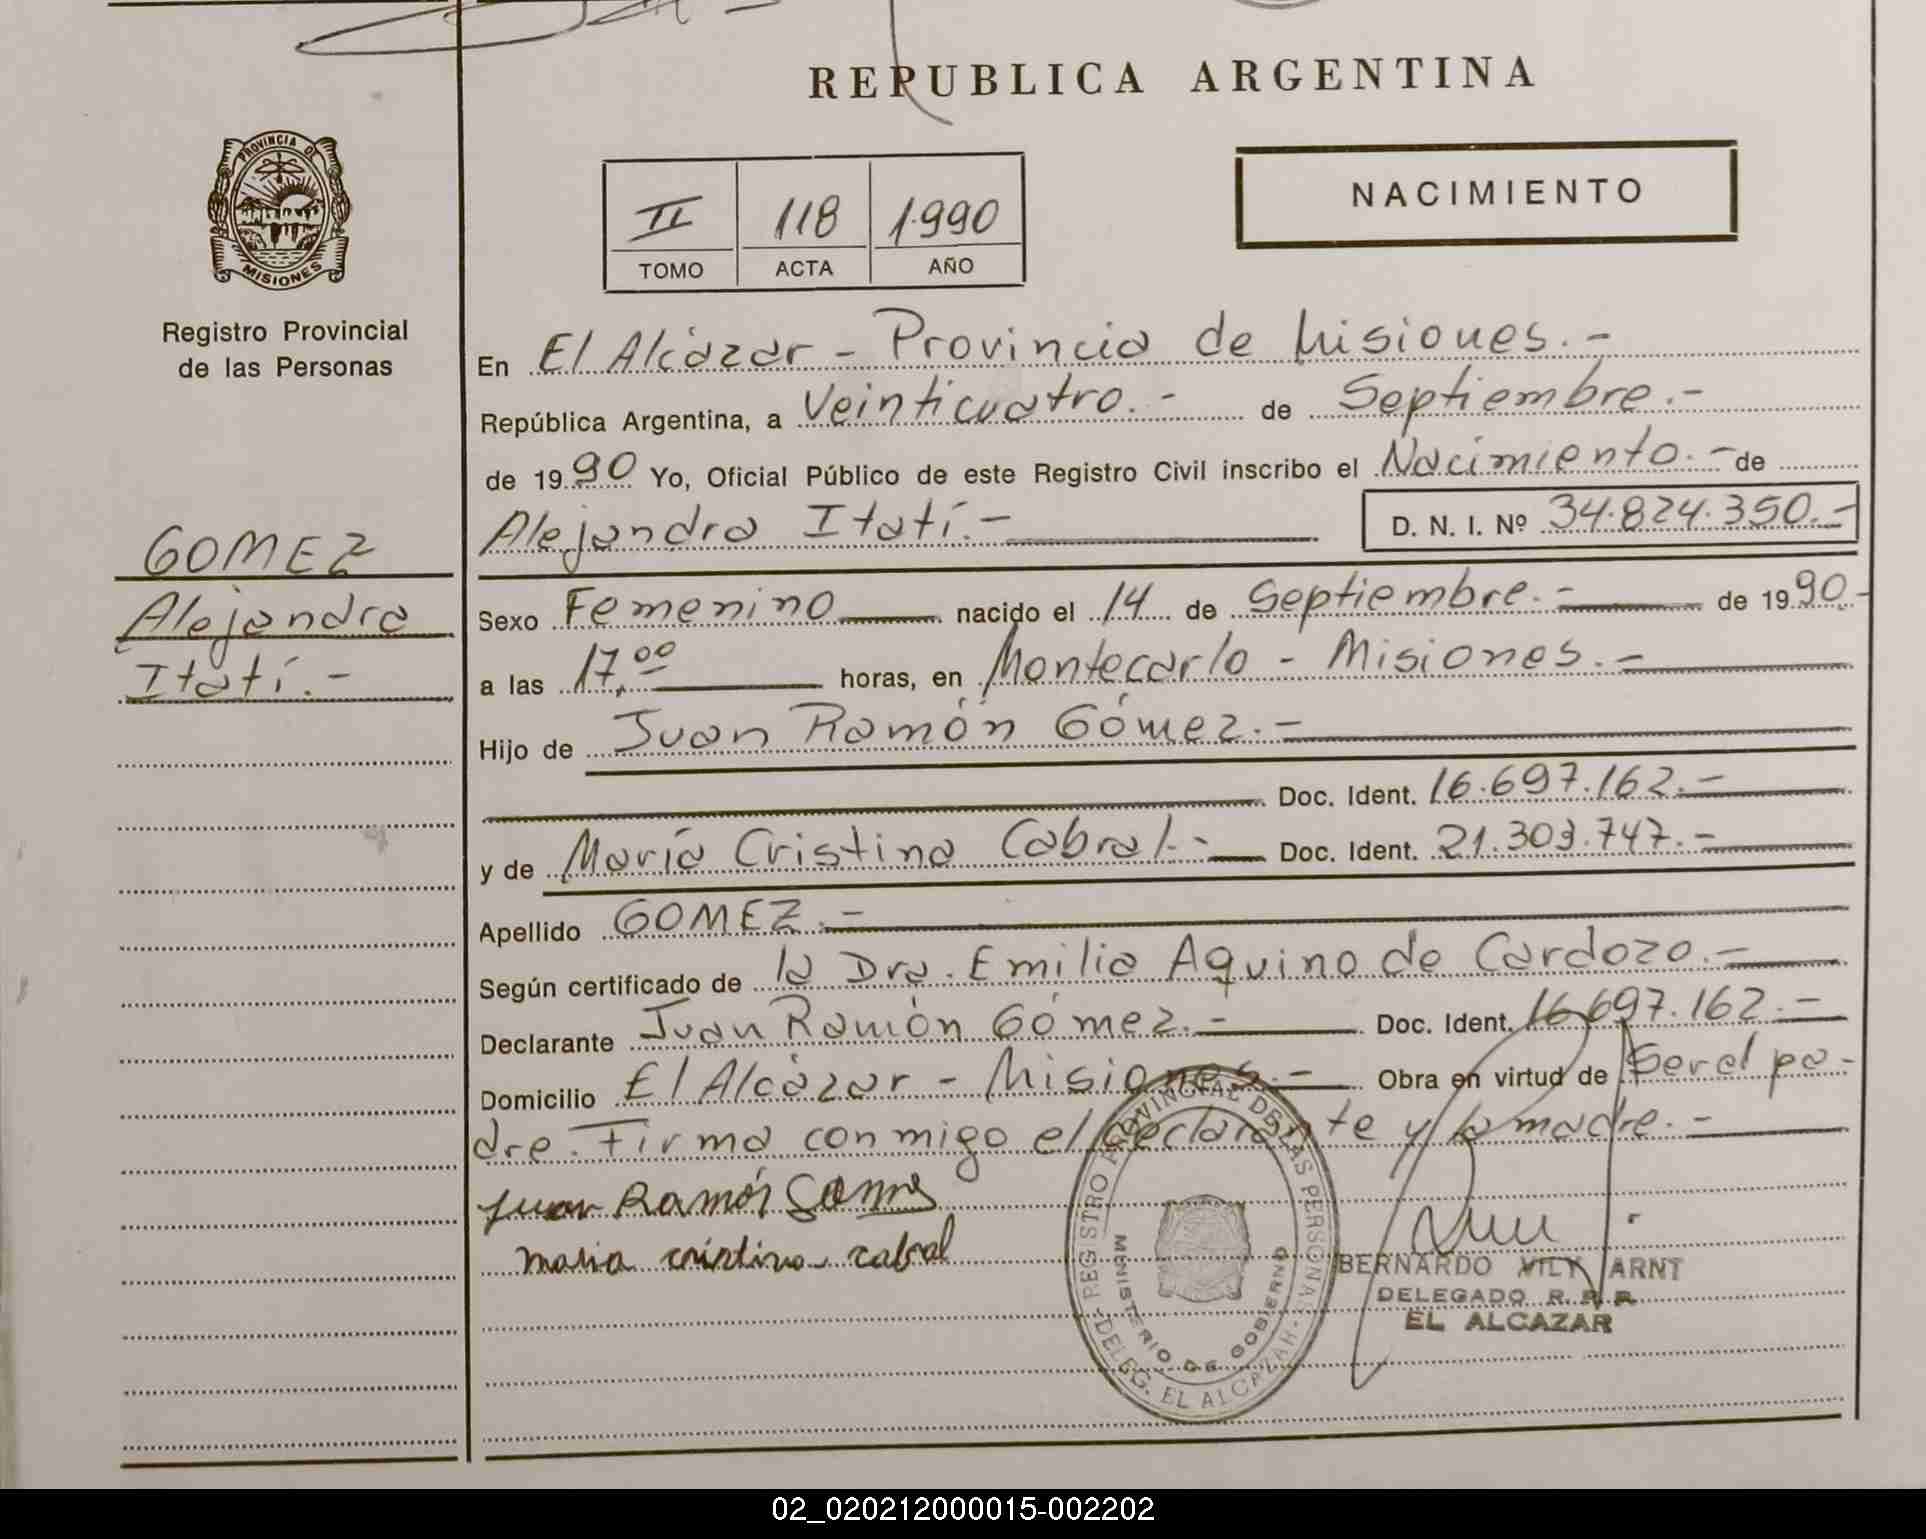 REPUBLICA ARGENTINA
PROVINCIA DE
MISIONES
Registro Provincial
de las Personas
II 118 1.990
TOMO ACTA AÑO
NACIMIENTO
En El Alcázar - Provincia de Misiones.-
República Argentina, a Veinticuatro.- de Septiembre.-
de 1990 Yo, Oficial Público de este Registro Civil inscribo el Nacimiento.- de
Alejandra Itatí.- D. N. I. Nº 34.824.350.-
GOMEZ
Alejandra
Itatí.-
Sexo Femenino nacido el 14 de Septiembre.- de 1990.-
a las 17,00 horas, en Montecarlo - Misiones.-
Hijo de Juan Ramón Gómez.-
Doc. Ident. 16.697.162.-
y de María Cristina Cabral.- Doc. Ident. 21.303.747.-
Apellido GOMEZ.-
Según certificado de la Dra. Emilia Aquino de Cardozo.-
Declarante Juan Ramón Gómez.- Doc. Ident. 16.697.162.-
Domicilio El Alcázar - Misiones.- Obra en virtud de Ser el pa-
dre. Firma conmigo el declarante y la madre.-
Juan Ramón Gomes
maria cristina cabral
REGISTRO PROVINCIAL DE LAS PERSONAS
MINISTERIO DE GOBIERNO
DELEG. EL ALCAZAR
BERNARDO ARNT
DELEGADO R. P. P.
EL ALCAZAR
02_020212000015-002202